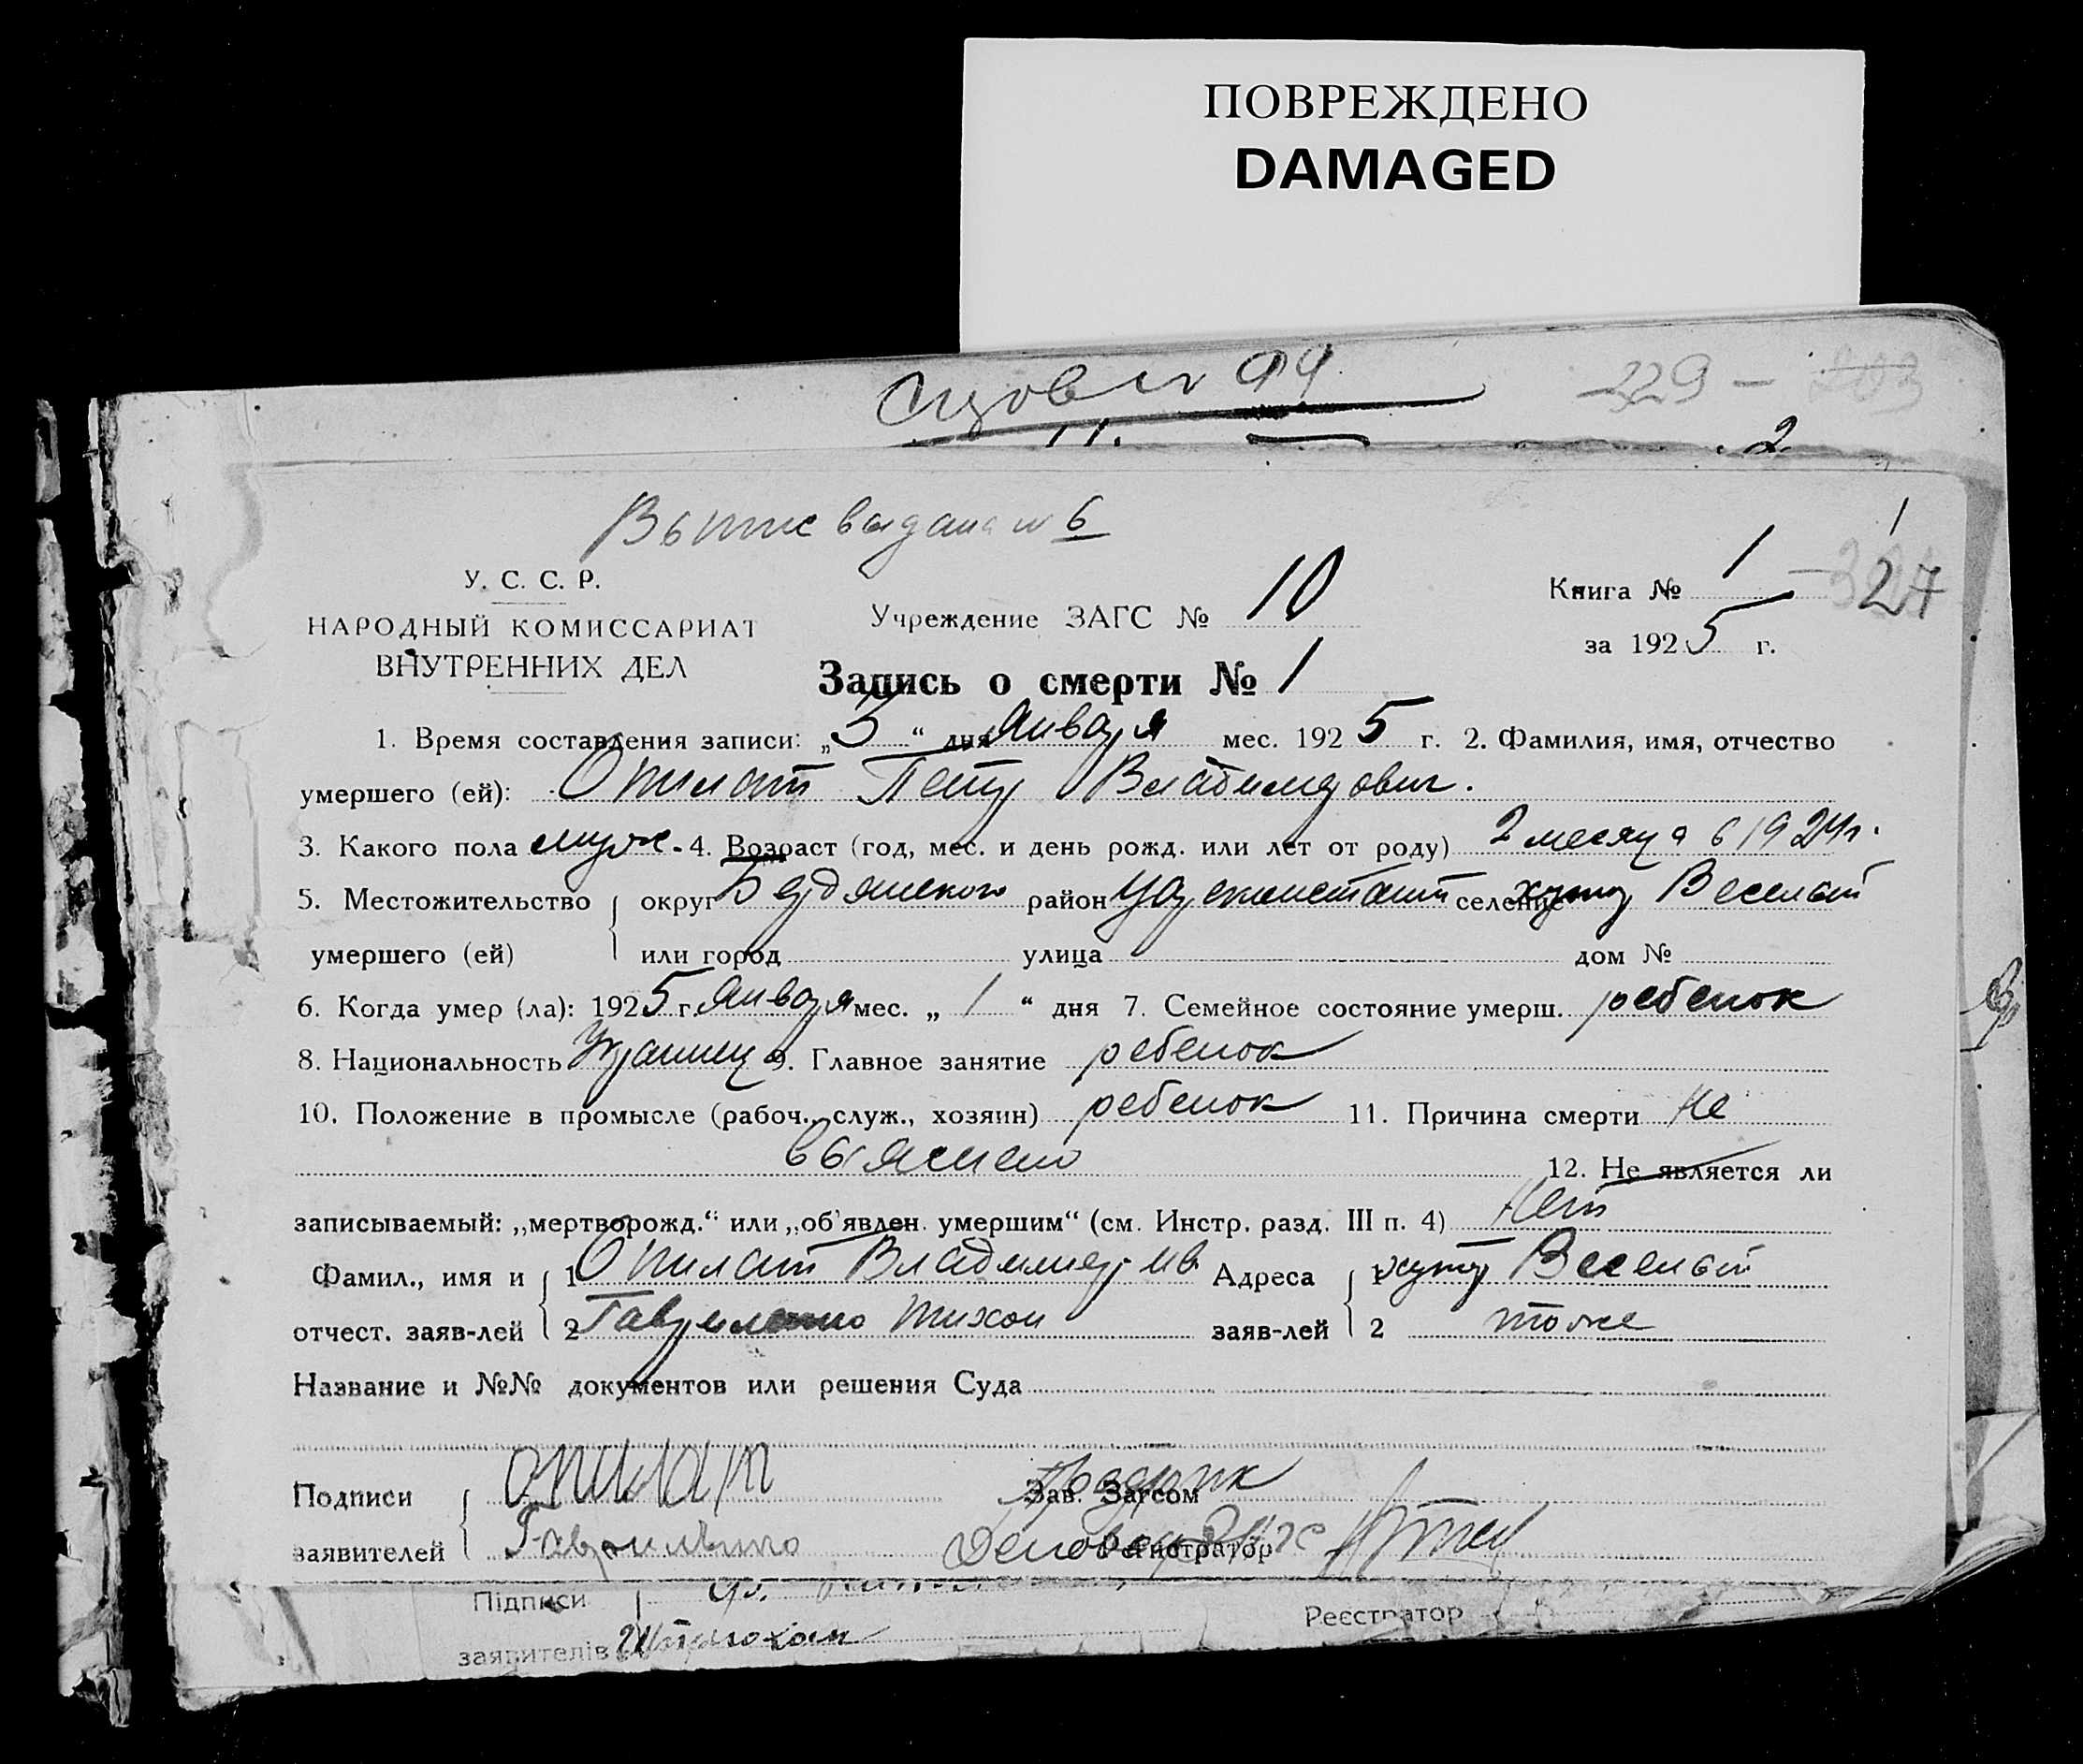 ПОВРЕЖДЕНО
DAMAGED
329 — 203
2.
выдана № 6
1
У. С. С. Р.
НАРОДНЫЙ КОМИССАРИАТ
ВНУТРЕННИХ ДЕЛ
Учреждение ЗАГС № 10
Книга № 1
27
за 1925 г.
Запись о смерти № 1
1. Время составления записи: „3“ дня Января мес. 1925 г. 2. Фамилия, имя, отчество
умершего (ей): Опилат Петр Владимирович.
3. Какого пола муж. 4. Возраст (год, мес. и день рожд. или лет от роду) 2 месяца 1924 г.
5. Местожительство округ Бердянского район Цареконстант селение хутор Веселый
умершего (ей) или город улица дом №
6. Когда умер (ла): 1925 г. Января мес. „ 1 “ дня 7. Семейное состояние умерш. ребенок
8. Национальность Украинец 9. Главное занятие ребенок
10. Положение в промысле (рабоч., служ., хозяин) ребенок 11. Причина смерти не
выяснено 12. Не является ли
записываемый: „мертворожд.“ или „об'явлен. умершим“ (см. Инстр. разд. III п. 4) Нет
Фамил., имя и 1 Опилат Владимир Ив. Адреса 1 хутор Веселый
отчест. заяв-лей 2 Гавриленко Тихон заяв-лей 2 тоже
Название и №№ документов или решения Суда
Подписи Опилат Зав. Загсом
заявителей Гаврильенко Регистратор
Підписи
Реєстратор
заявителів